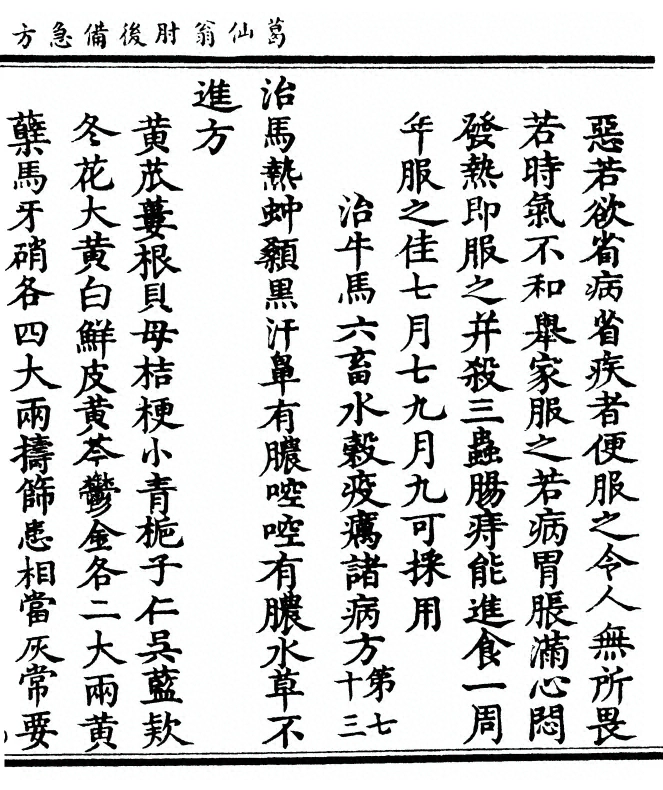 葛仙翁肘後備急方
惡若欲省病省疾者便服之令人無所畏
若時氣不和舉家服之若病胃脹滿心悶
發熱即服之并殺三蟲腸痔能進食一周
年服之佳七月七九月九可採用
治牛馬六畜水穀疫癘諸病方第七十三
治馬熱蚛顙黑汗鼻有膿啌啌有膿水草不
進方
黄苽蔞根貝母桔梗小青梔子仁吳藍欵
冬花大黄白鮮皮黄芩鬱金各二大兩黄
蘗馬牙硝各四大兩擣篩患相當灰常要